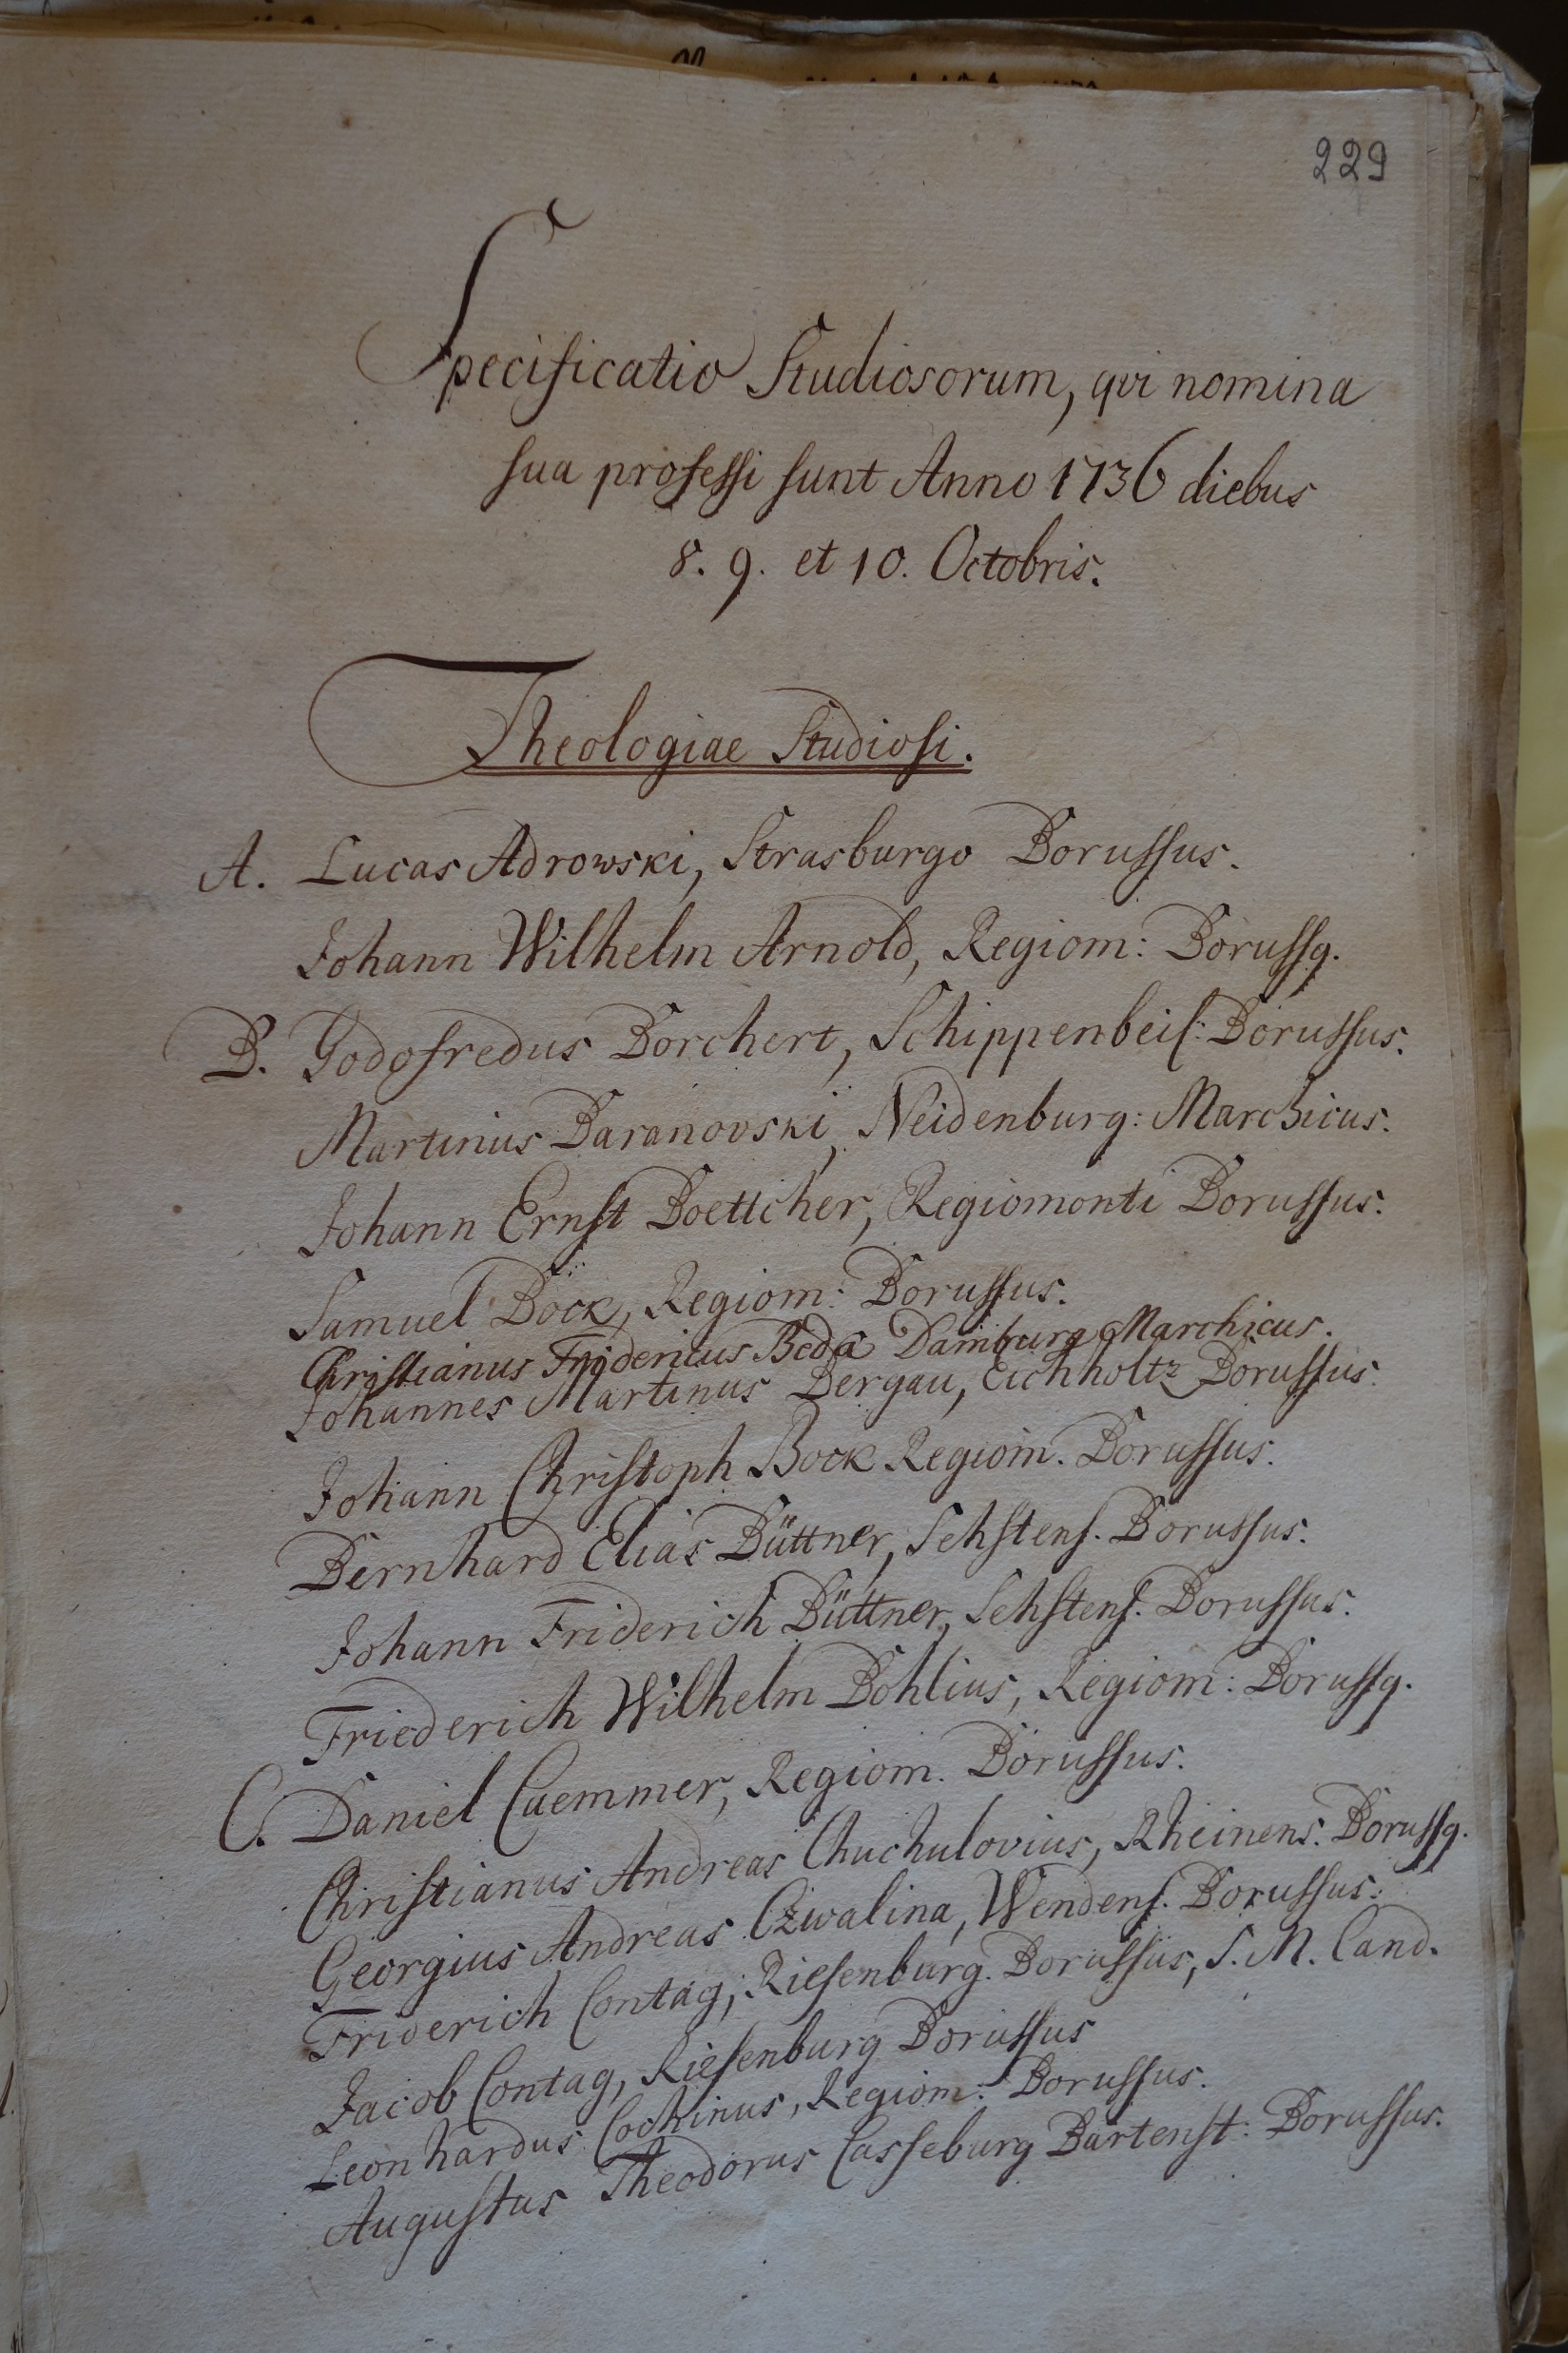 229
Specificatio Studiosorum, qvi nomina
sua professi sunt Anno 1736 diebus
8. 9. et 10. Octobris.
Theologiae Studiosi.
A. Lucas Adrowski, Strasburgo Borussus.
Johann Wilhelm Arnold, Regiom: Borussq.
B. Godofredus Borchert, Schippenbeis: Borussus.
Martinius Baranovski, Neidenburg: Marchicus.
Johann Ernst Boettcher, Regiomonti Borussus.
Samuel Bock, Regiom: Borussus.
Christianus Fridericus Beda Damburg Marchicus.
Johannes Martinus Bergau, Eichholtz Borussus.
Johann Christoph Bock Regiom. Borussus.
Bernhard Elias Büttner, Sehstens. Borussus.
Johann Friderich Büttner, Sehstens. Borussus.
Friederich Wilhelm Bohlius, Regiom: Borussq.
C. Daniel Cuemmer, Regiom. Borussus.
Christianus Andreas Chuchulovius, Rheinens. Borussq.
Georgius Andreas Czwalina, Wendens. Borussus.
Friderich Contag, Riesenburg. Borussus, S. M. Cand.
Jacob Contag, Riesenburg Borussus
Leonhardus Cochinus, Regiom: Borussus.
Augustus Theodorus Casseburg Bartenst: Borussus.